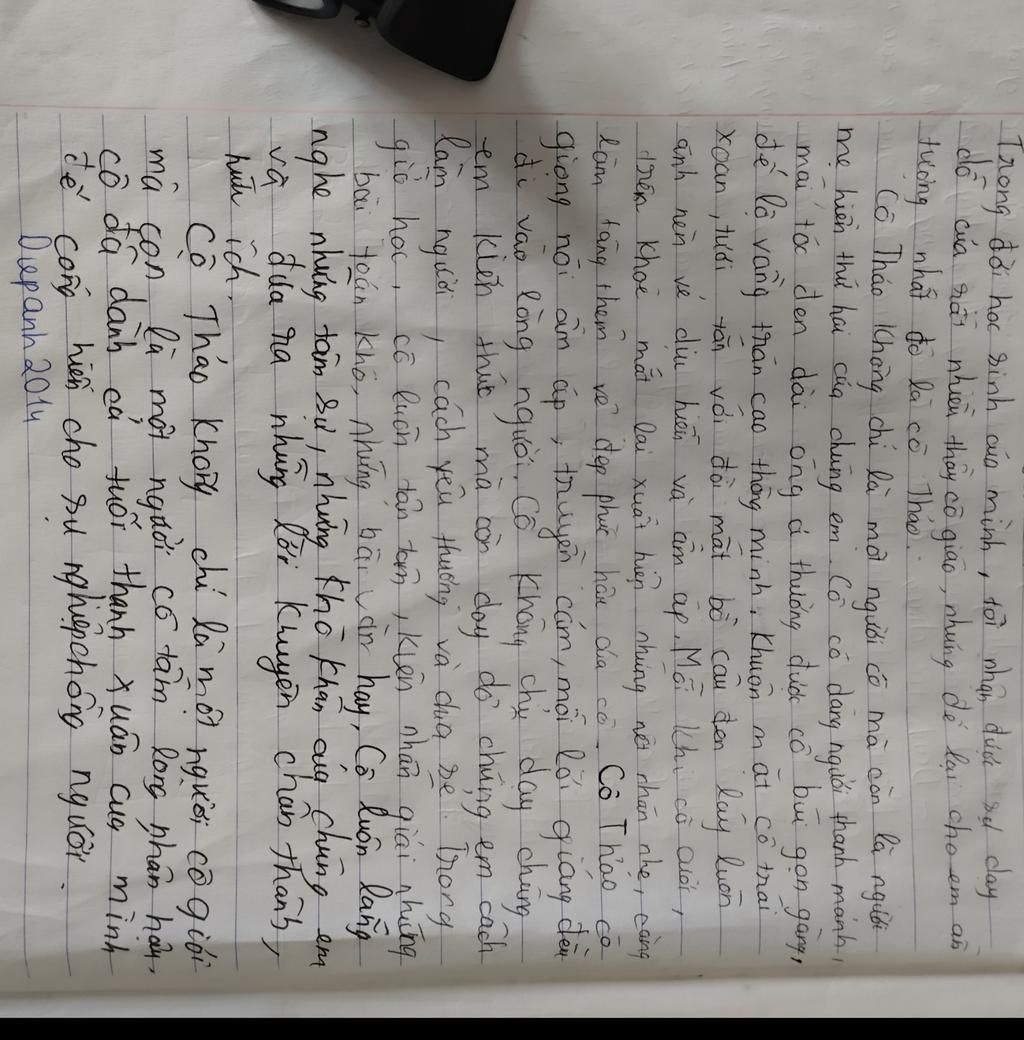 Trong đời học sinh của mình, tôi nhận được sự dạy
dỗ của rất nhiều thầy cô giáo, nhưng để lại cho em ấn
tượng nhất đó là cô Thảo.
Cô Thảo không chỉ là một người cô mà còn là người
mẹ hiền thứ hai của chúng em. Cô có dáng người thanh mảnh,
mái tóc đen dài óng ả thường được cô búi gọn gàng,
để lộ vầng trán cao thông minh. Khuôn mặt cô trái
xoan, tươi tắn với đôi mắt bồ câu đen láy luôn
ánh nên vẻ dịu hiền và ấm áp. Mỗi khi cô cười,
trên khoé mắt lại xuất hiện những nết nhăn nhẹ, càng
làm tăng thêm vẻ đẹp phúc hậu của cô. Cô Thảo có
giọng nói ấm áp, truyền cảm, mỗi lời giảng đều
đi vào lòng người. Cô không chỉ dạy chúng
em kiến thức mà còn dạy dỗ chúng em cách
làm người, cách yêu thương và chia sẻ. Trong
giờ học, cô luôn tận tâm, kiên nhẫn giải những
bài toán khó, những bài văn hay. Cô luôn lắng
nghe những tâm sự, những khó khăn của chúng em
và đưa ra những lời khuyên chân thành,
hữu ích.
Cô Thảo không chỉ là một người cô giỏi
mà còn là một người có tấm lòng nhân hậu,
cô đã dành cả tuổi thanh xuân của mình
để cống hiến cho sự nghiệp trồng người.
Diepanh2014